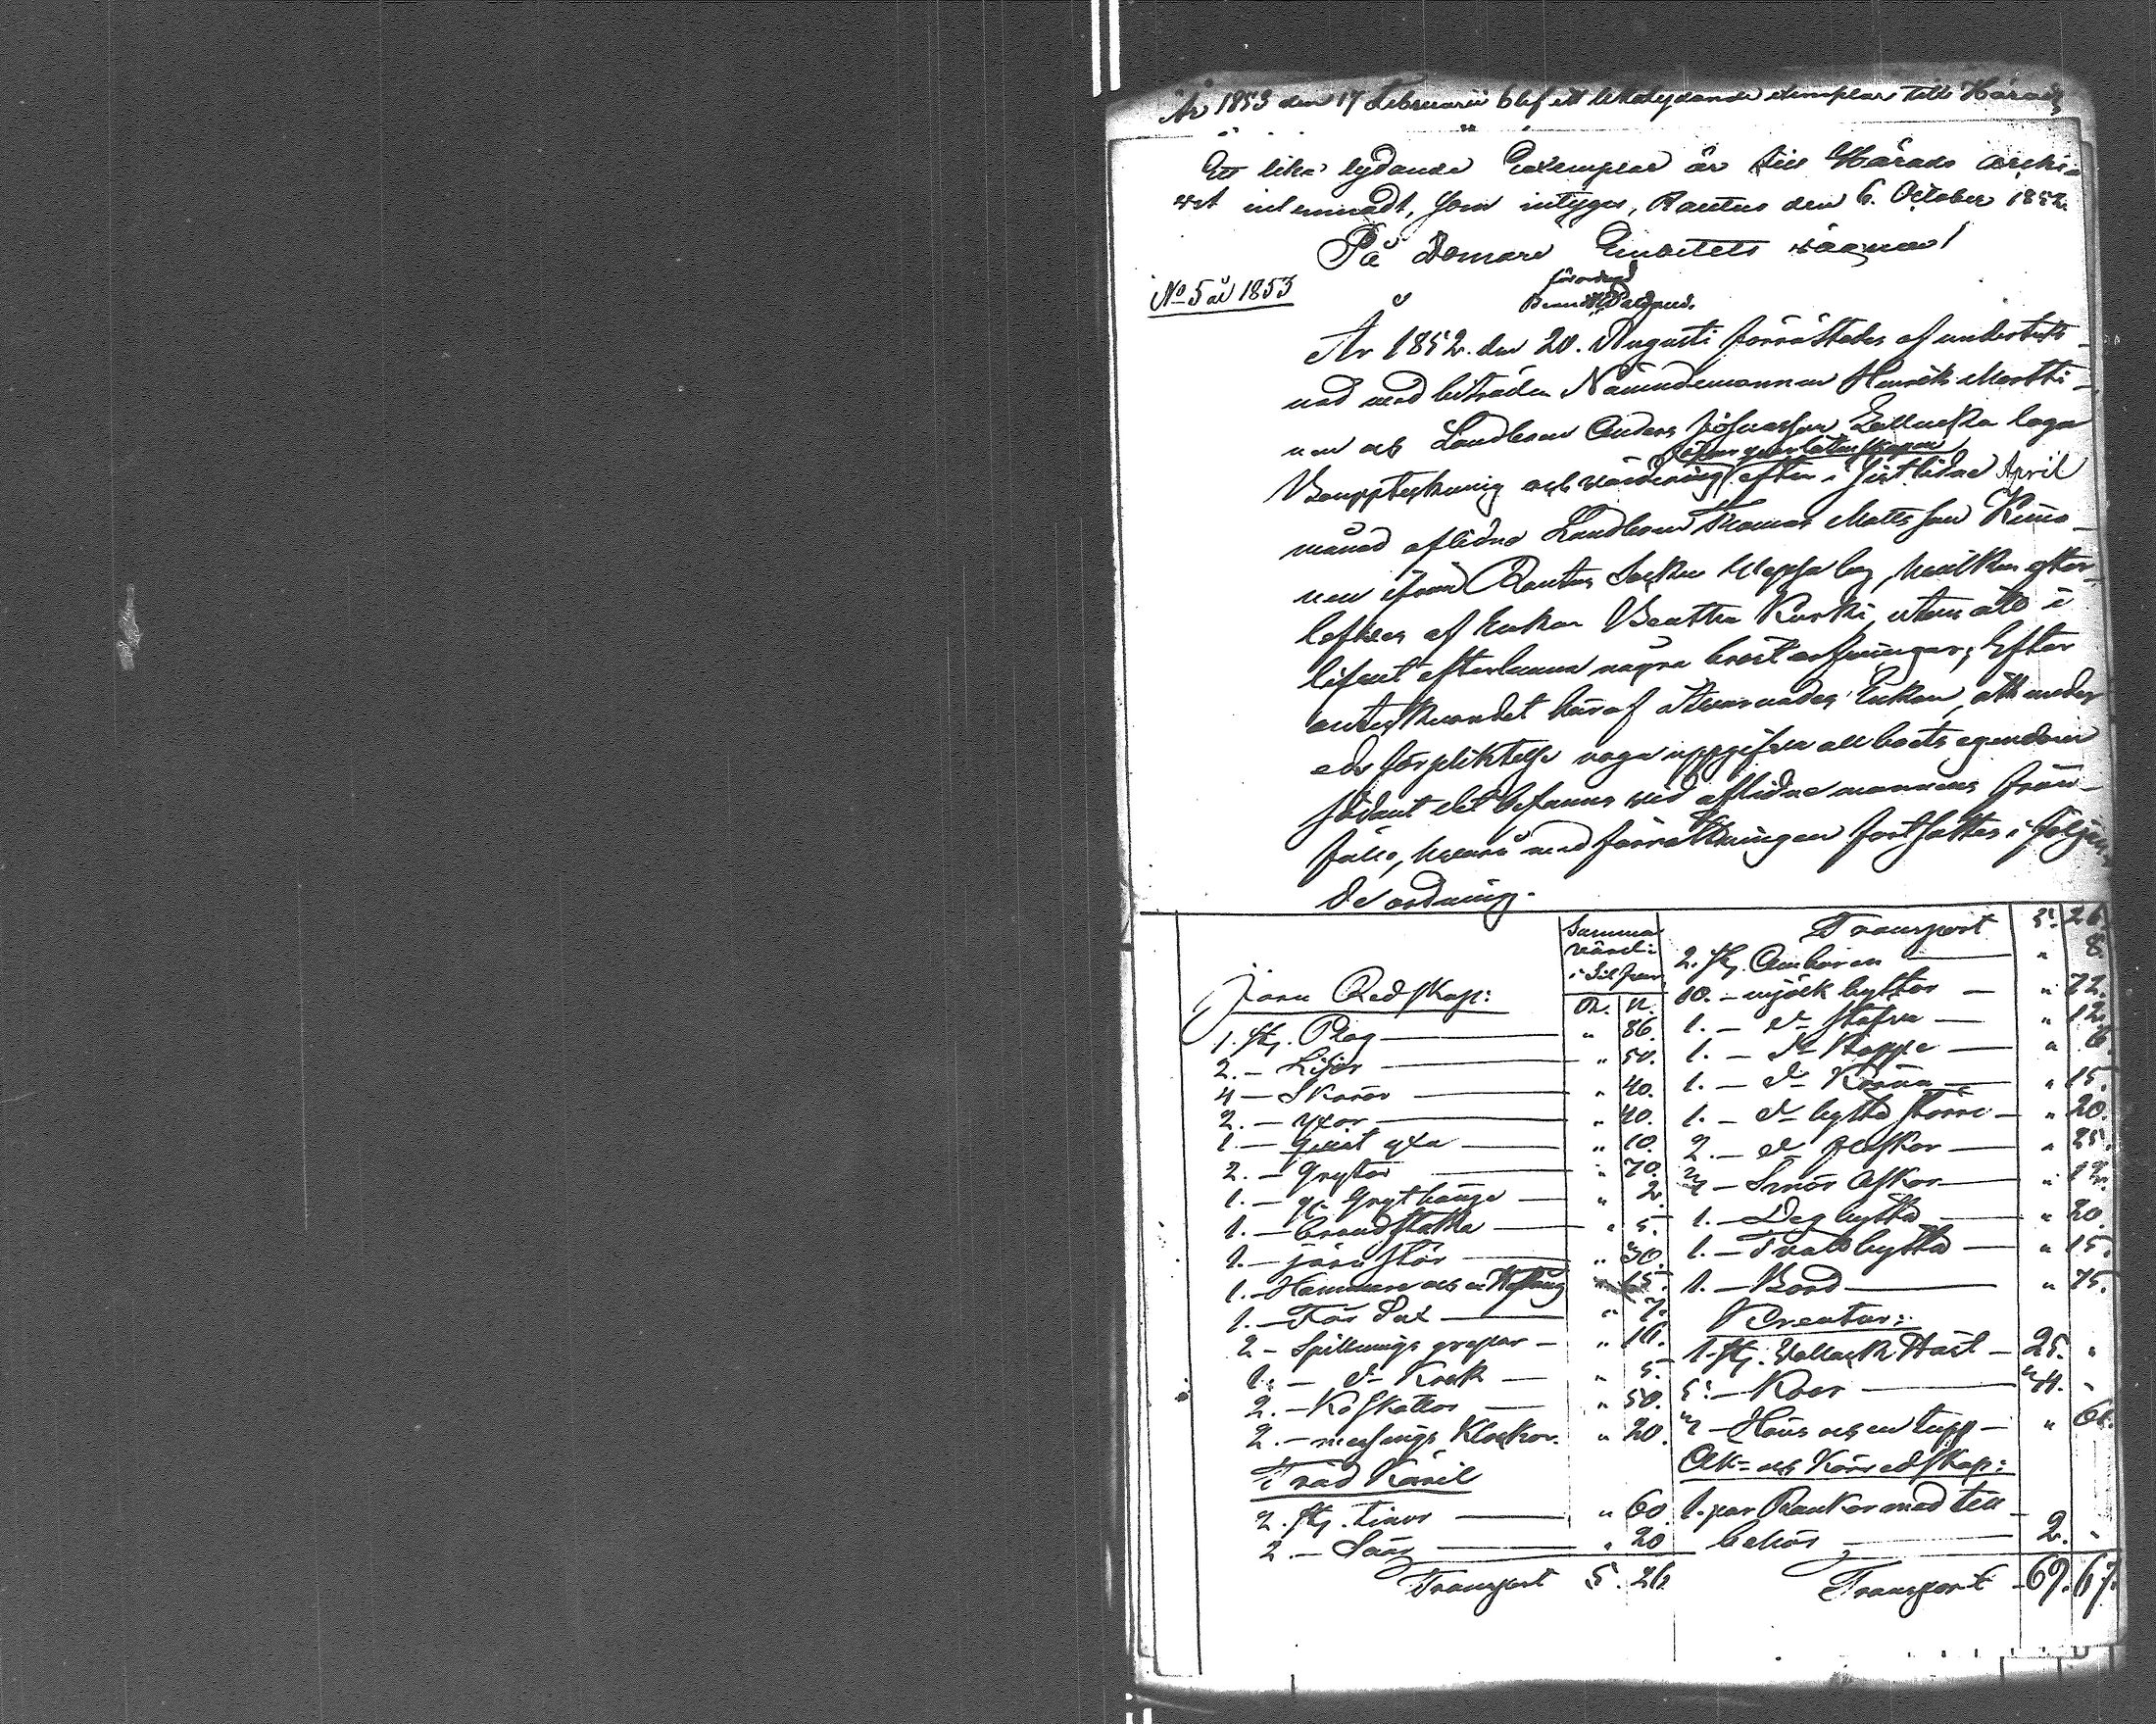 År 1853 den 17 Februarii blef ett likalydande exemplar till Härads
Ett lika lydande Exemplar är till Härads archi-
vet inlemnadt, som intygar, Rautus den 6. October 1852.
På Domare Embetets vägnar
förordnad
No 5 år 1853
År 1852. den 20. Augusti förrättades af underteck-
nad med biträden Nämndemannen Henrik Martti-
nen och Landbon Anders Johansson laga
öfver qvarlåtenskapen
Bouppteckning och värdering efter i sistlidne April
månad aflidne Landbon Thomas Mattsson Kimo-
nen ifrån Rautus Socken by, hvilken efter-
lefves af Enkan Beatha Kurki, utan att i
lifvet efterlemna några bröst arfvingar; Efter
antecknandet häraf åtvarnades Enkan, att under
eds förpliktelse noga uppgifva all boets egendom
sådant det befanns vid aflidne mannens från-
fälle, hvarå med förrättningen fortsattes i följan-
de ordning.
Summa
värde
i Silfver
Järn Redskap: R. K.
1. st. Plog — " 86.
2. — Lijor — " 50.
4 — Skäror — " 40.
2. — yxor — " 40.
1 — qvist yxa — " 10.
2. — Grytor — " 70.
1. — Grythänge — " 2.
1. — brandstake — " 5.
1. — järn stör — " 30.
1. — Hammare och en Hoftång " 15.
1. — Får Sax — " 7.
2 — Spillnings grepar — " 16.
1. — d:o Krok — " 5.
2. — Koskällor — " 50.
2. — messings Klockor. " 20.
Träd Käril
2. st. tinor — " 60.
2. — Såar — " 20
Transport 5. 26
Transport 5. 26.
2. st. Ämbaren — " 8.
10. — mjölk byttor — " 72.
1. — d:o stäfva — " 12.
1. — d:o Kappe — " 6.
1. — d:o Kärna — " 15.
1. — d:o bytta större — " 20.
2. — d:o flaskor — " 25.
2 — Smör Askar — " 12.
1. — Deg bytta — " 20.
1. — Tvätt bytta — " 15.
1. — Bord — " 75.
Kreatur:
1. st. Vallack Häst — 25. "
5. — Kor — "
Höns och en tupp — " 60.
Åk- och Körredskap:
1. par Rankor med till
behör — 2. "
Transport 69. 67.